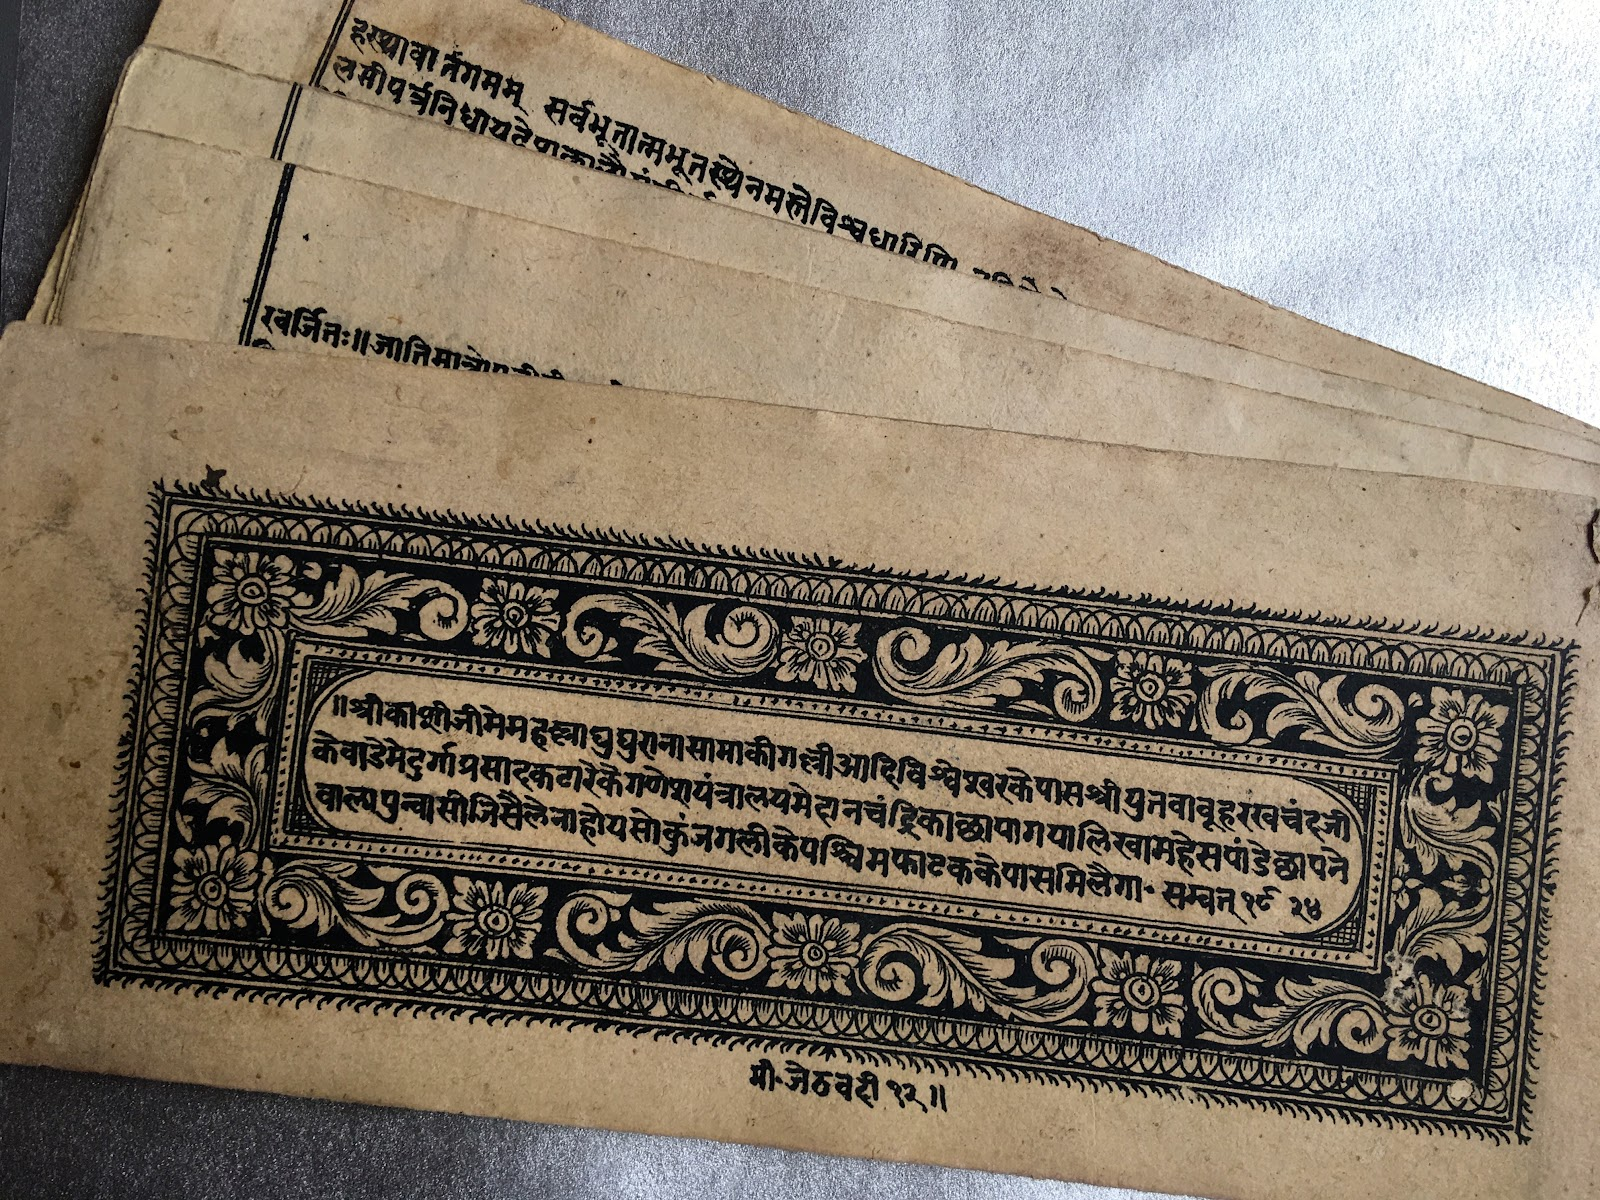 हस्थावा र्तगमम् सर्वभूतात्मभूतस्थेनमस्तेविश्वधारिणि
लसीपत्रंनिधायते
रवर्जितः॥जातिमात्रो
॥श्रीकाशीजीमेमहल्लाघुघुरानासामाकीगल्लीआदिविश्वेश्वरकेपासश्रीयुतवाबूहरखचंदजी
केवाडेमेदुर्गाप्रसादकटारेकेगणेशयंत्रालयमेदानचंद्रिकाछापागयालिखामहेसपांडेछापने
वाल्मपुन्वासीजिसैलेनाहोयसोकुंजगलीकेपश्चिमफाटककेपासमिलैगा॰ सम्वत् १९ २४
मी॰जेठवदी १२॥